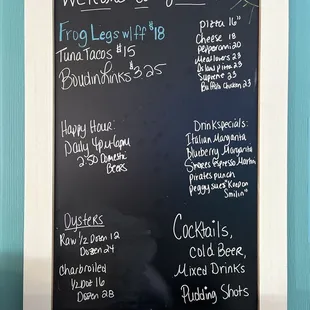 Welcome
Frog Legs w/ff $18
Tuna Tacos $15
Boudin Links $3.25
pizza 16"
Cheese 18
pepperoni 20
Meat lovers 23
Island pizza 23
Supreme 23
Buffalo Chicken 23
Happy Hour:
Daily 4pm-6pm
2.50 Domestic
Beers
Drink specials:
Italian Margarita
Blueberry Margarita
Espresso Martini
Pirates punch
Peggy sues "Keep on
Smilin"
Oysters
Raw 1/2 Dozen 12
Dozen 24
Charbroiled
1/2 Dot 16
Dozen 28
Cocktails,
Cold Beer,
Mixed Drinks
Pudding Shots